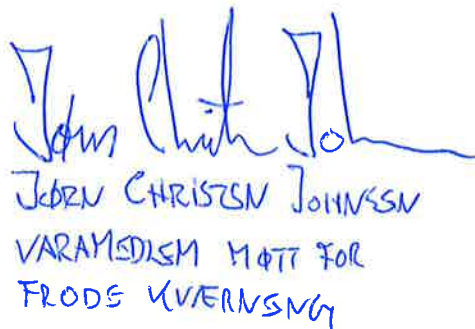 Jørn Christen Johnsen
JØRN CHRISTEN JOHNSEN
VARAMEDLEM MØTT FOR
FRODE KVÆRNENG